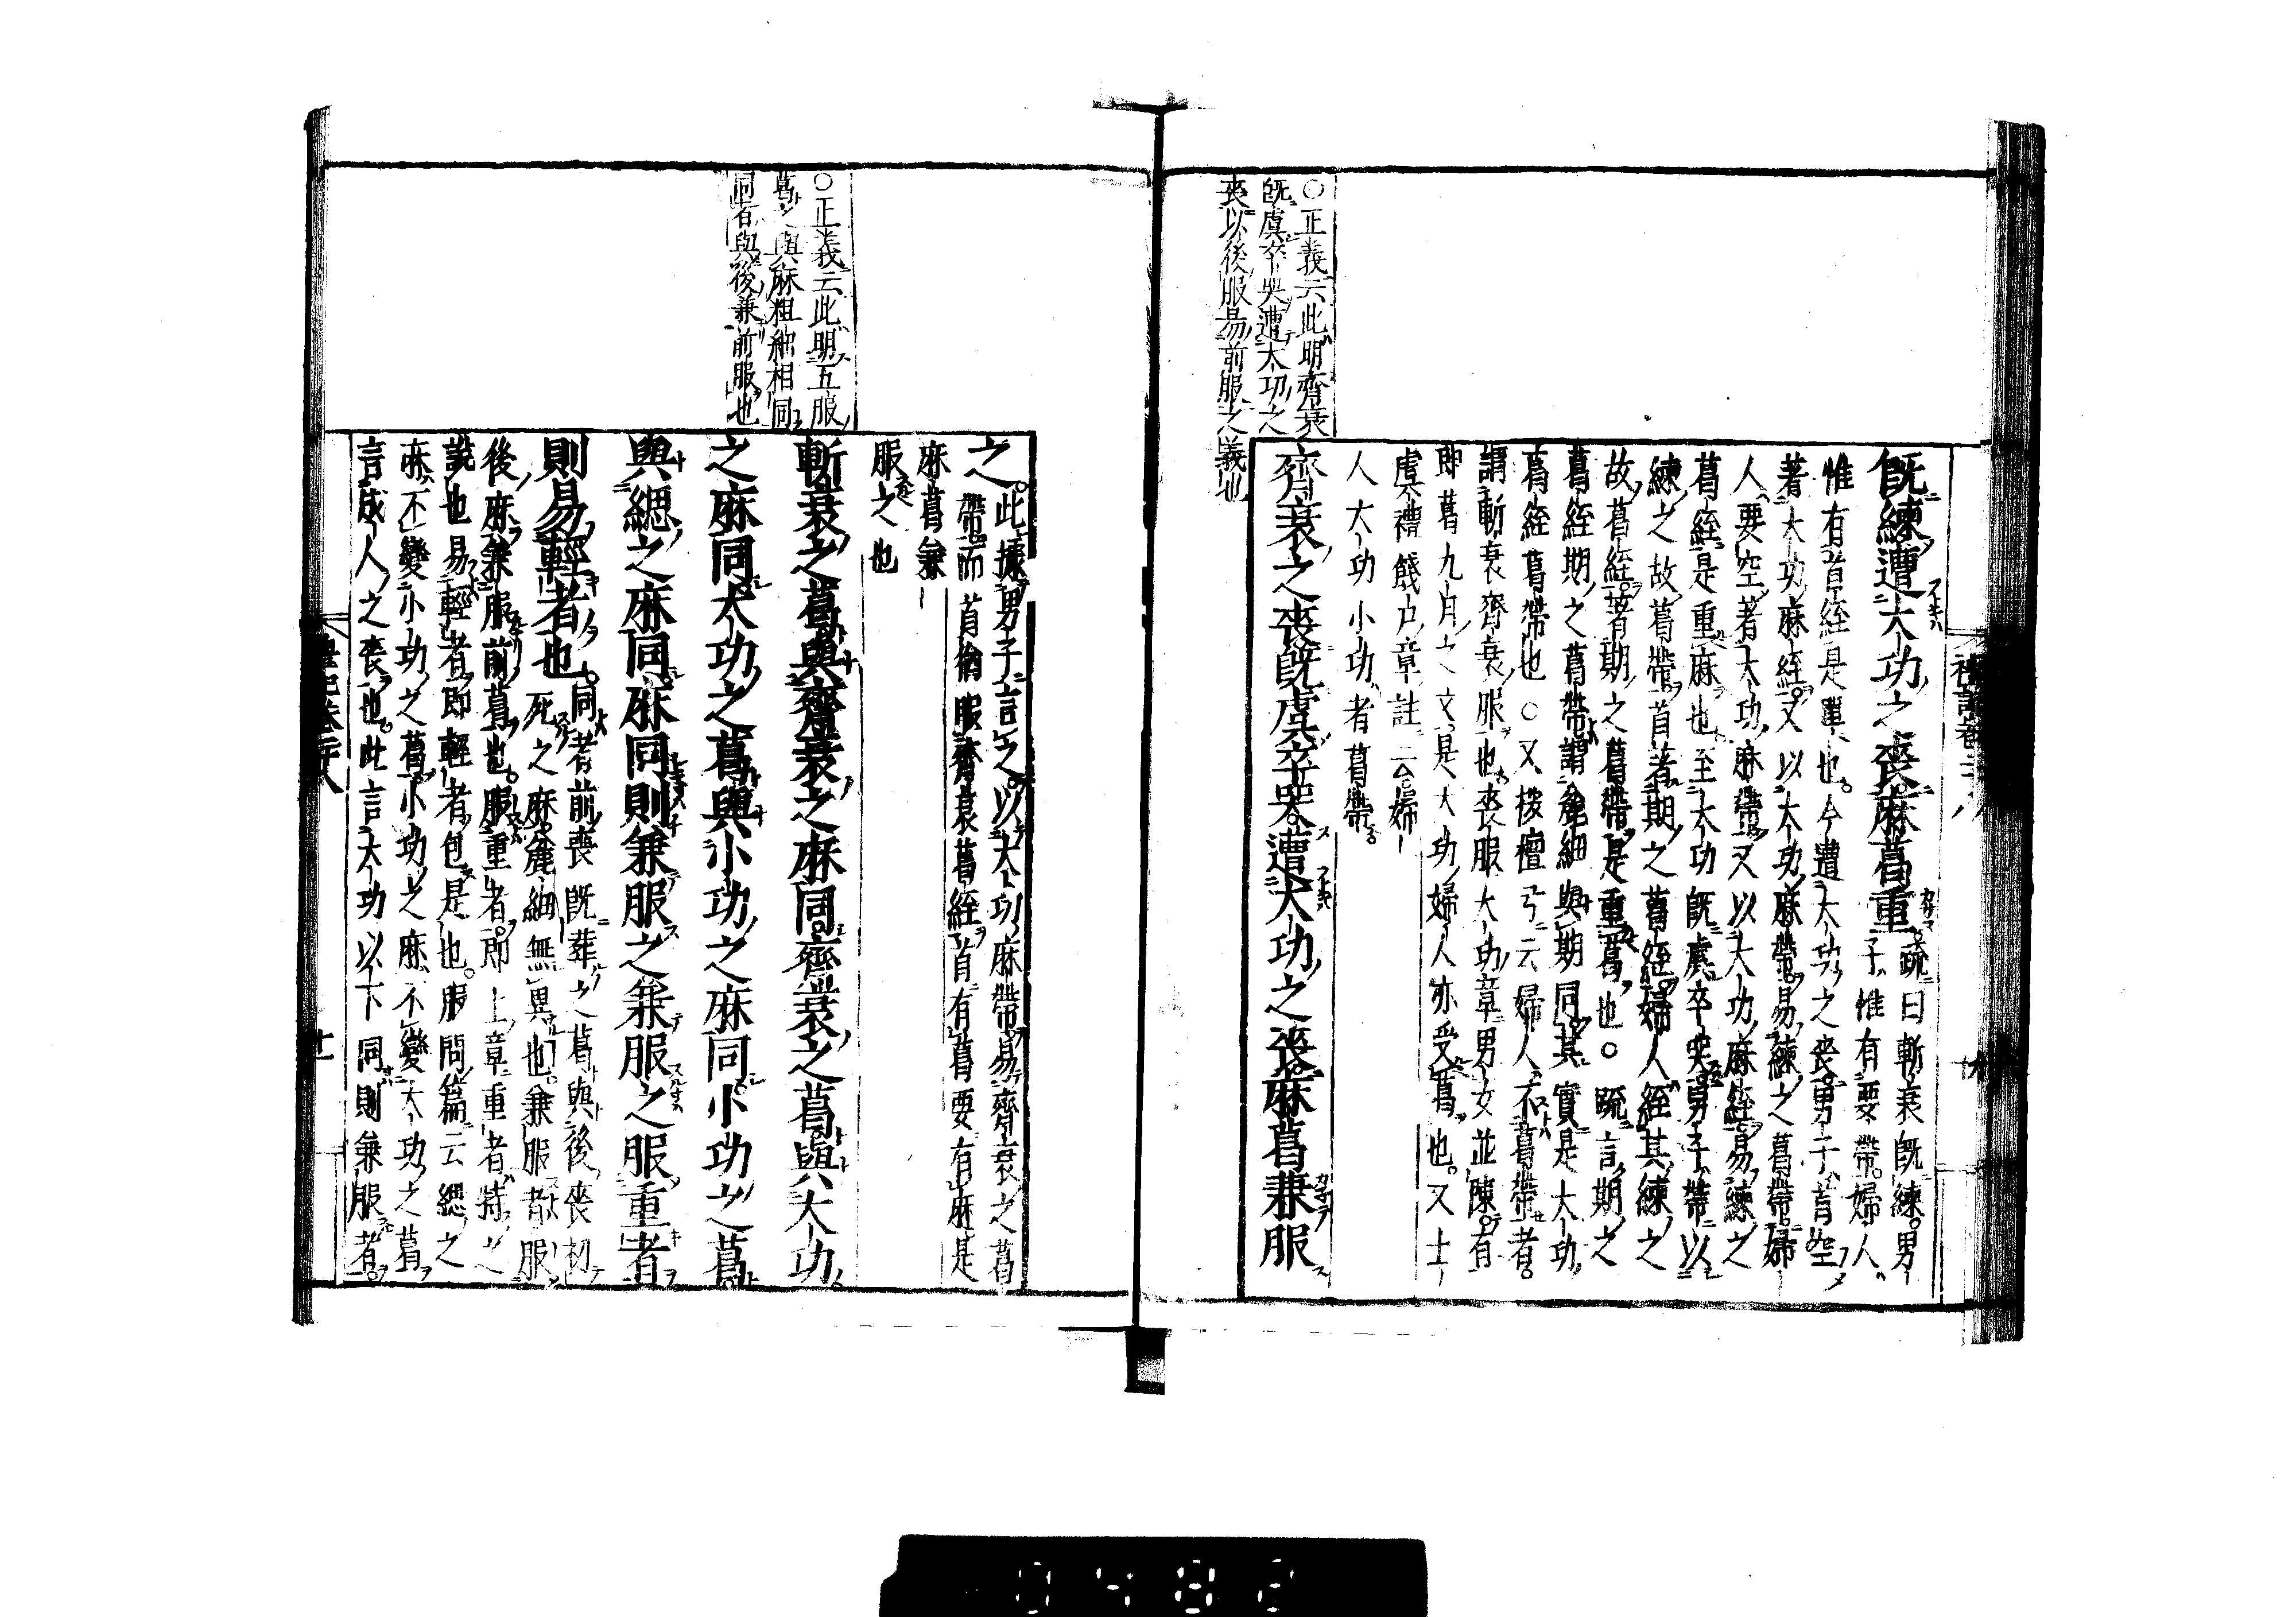 既練遭大功之喪麻葛重疏曰斬衰既練男
子惟有要帶婦人
惟有首絰是單也今遭大功之喪男子首空
著大功麻絰又以大功麻帶易練之葛帶婦
人要空著大功麻帶又以大功麻絰易練之
葛絰是重麻也至大功既虞卒哭男子帶以
練之故葛帶首著期之葛絰婦人絰其練之
故葛絰著期之葛帶是重葛也○疏言期之
葛絰期之葛帶謂麄細與期同其實是大功
葛絰葛帶也○又按檀弓云婦人不葛帶者
謂斬衰齊衰服也喪服大功章男女並陳有
即葛九月之文是大功婦人亦受葛也又士
虞禮餞尸章註云婦
人大功小功者葛帶
○正義云此明齊衰
既虞卒哭遭大功之
喪以後服易前服之義也
齊衰之喪既虞卒哭遭大功之喪麻葛兼服
禮記卷二十八
十
之此據男子言之以大功麻帶易齊衰之葛
帶而首猶服齊衰葛絰首有葛要有麻是
麻葛兼
服之也
○正義云此明五服
葛之與麻粗細相同
同者與後兼前服也
斬衰之葛與齊衰之麻同齊衰之葛與大功
之麻同大功之葛與小功之麻同小功之葛
與緦之麻同麻同則兼服之兼服之服重者
則易輕者也同者前喪既葬之葛與後喪初
死之麻麄細無異也兼服者服
後麻兼服前葛也服重者即上章重者特之
說也易輕者即輕者包是也服問篇云緦之
麻不變小功之葛小功之麻不變大功之葛
言成人之喪也此言大功以下同則兼服者
禮記卷二十八
十一